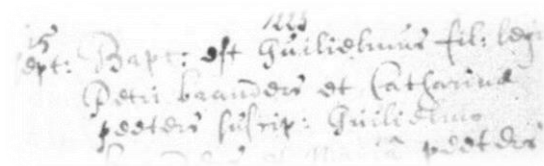 15
sept: Bapt: est Guilielmus fil: legi
Petri braanders et Catharina
peeters suscip: Guilielmo
peeters